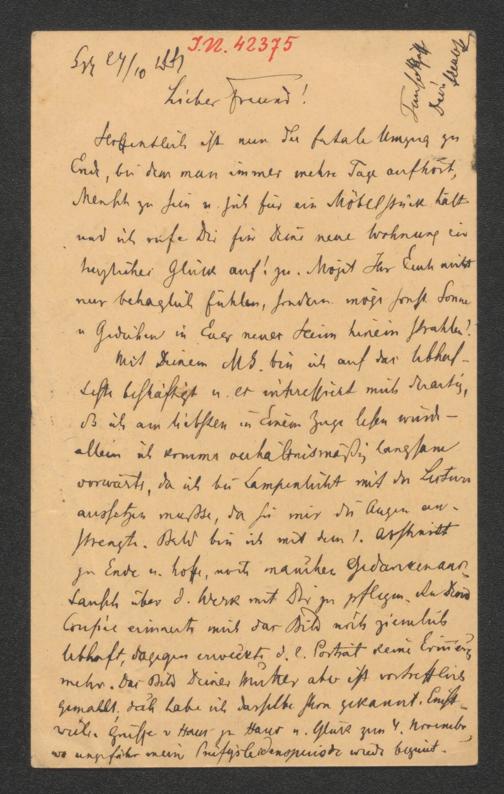 I.N. 42375
24/10
Lieber Freund!
Hoffentlich ist nun der fatale Umzug zu
Ende, bei dem man immer mehre Tage aufhört,
Mensch zu sein u. sich für ein Möbelstück hält
und ich rufe Dir für Deine neue Wohnung ein
herzliches Glück auf! zu. Mögt Ihr Euch nicht
nur behaglich fühlen, sondern möge sonst Sonne
u Gedeihen in Euer neues Heim hinein strahlen!
Mit Deinem MS. bin ich auf das Lebhaf-
teste beschäftigt u. es interessirt mich derartig,
daß ich am liebsten in Einem Zuge lesen würde –
allein ich komme verhältnismäßig langsam
vorwärts, da ich bei Lampenlicht mit der Lecture
aussetzen mußte, da sie mir die Augen an-
strengte. Bald bin ich mit dem 1. Abschnitt
zu Ende u. hoffe, noch manchen Gedankenaus-
tausch über d. Werk mit Dir zu pflegen. An Deine
Cousine erinnert mich das Bild noch ziemlich
lebhaft, dagegen erweckte d. l. Porträt keine Erinnerg
mehr. Das Bild Deiner Mutter aber ist vortrefflich
gemahlt, doch habe ich dasselbe schon gekannt. Einst-
weilen Grüße v Haus zu Haus u. Glück zum 4. November
wo ungefähr meine wieder beginnt.